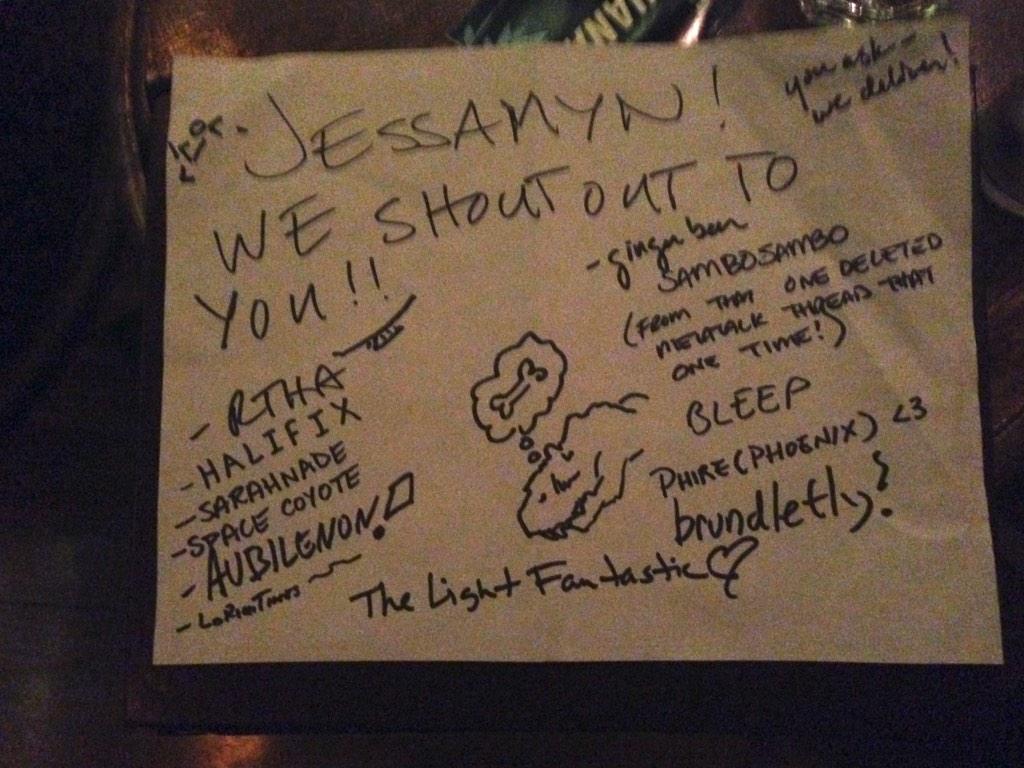 JESSAMYN!
you ask -
we deliver!
WE SHOUT OUT TO
YOU!!
- RTHA
- HALIFIX
- SARAHNADE
- SPACE COYOTE
- AUBILENON!
- LORIENTIMES
- ginger beer
SAMBOSAMBO
(FROM THAT ONE DELETED
METATALK THREAD THAT
ONE TIME!)
BLEEP
PHIRE (PHOENIX) <3
brundlefly!
The Light Fantastic